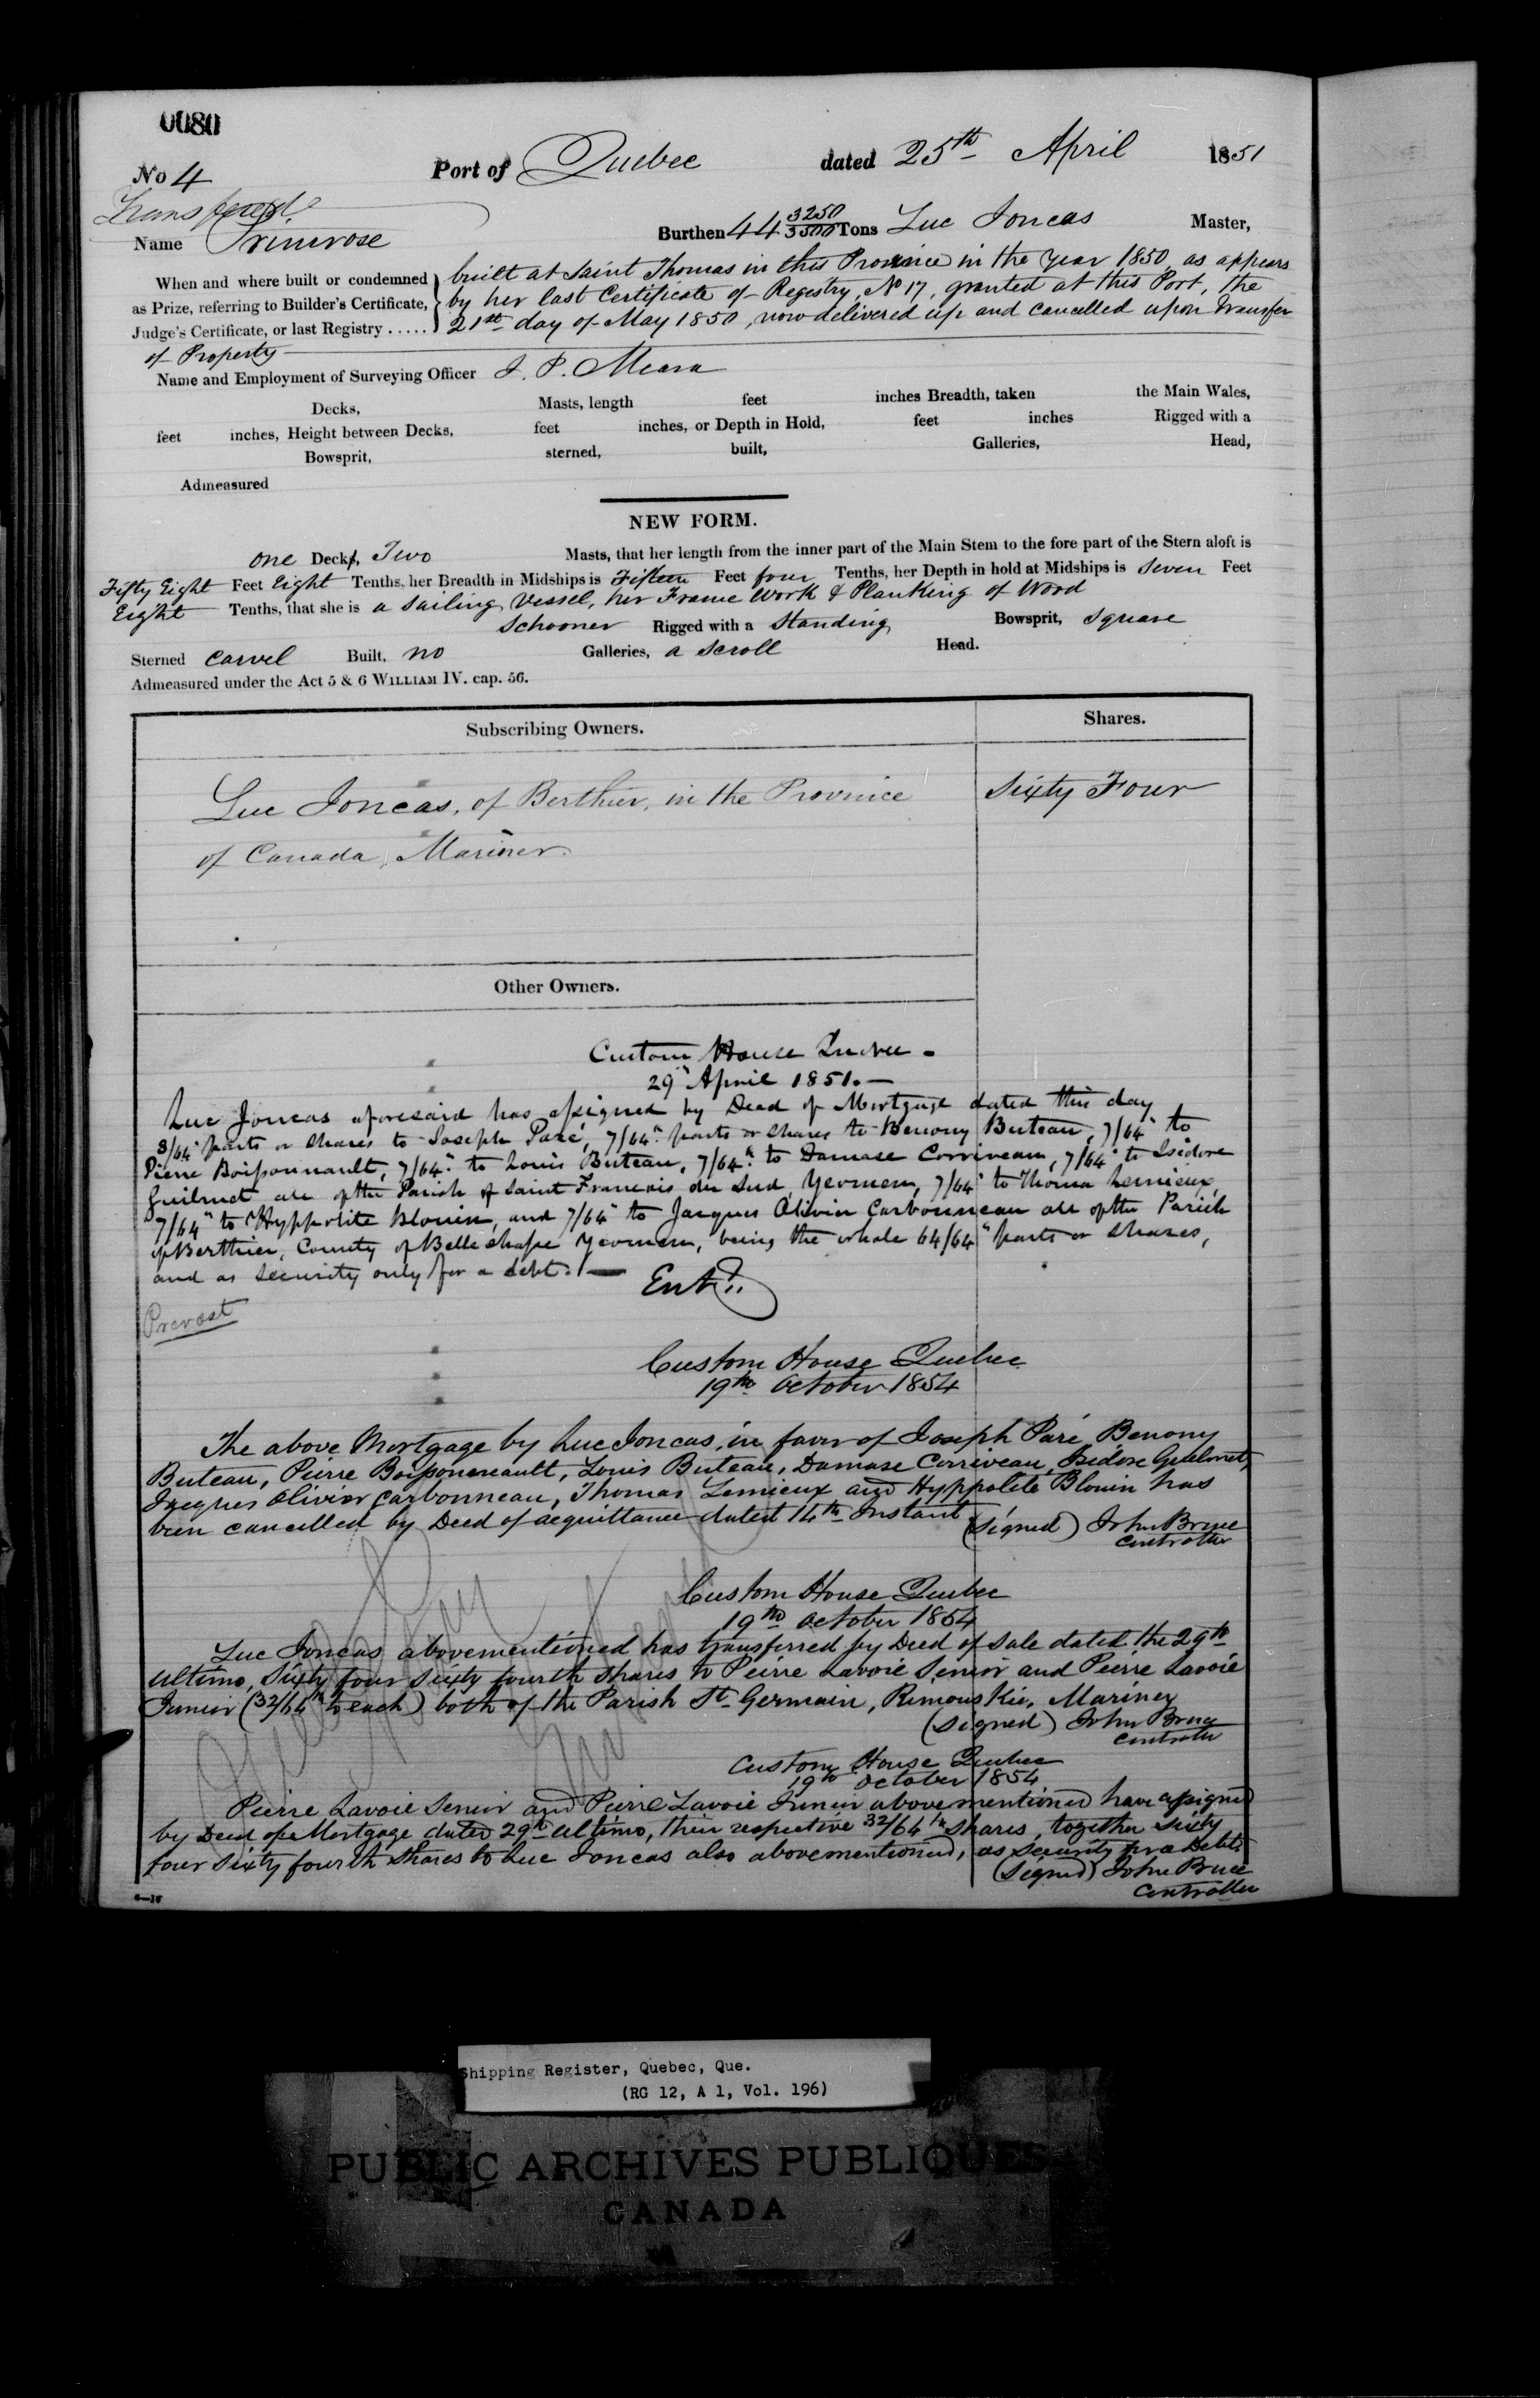 0080
No 4 Port of Quebec dated 25th April 1851
Transferred
Name Primrose Burthen 44 3250/3500 Tons Luc Joncas Master,
When and where built or condemned as Prize, referring to Builder's Certificate, Judge's Certificate, or last Registry .....
built at Saint Thomas in this Province in the year 1850, as appears
by her last Certificate of Registry, No 17, granted at this Port, the
21st day of May 1850, now delivered up and cancelled upon transfer
of Property
Name and Employment of Surveying Officer J. P. Meara
Decks, Masts, length feet inches Breadth, taken the Main Wales,
feet inches, Height between Decks, feet inches, or Depth in Hold, feet inches Rigged with a
Bowsprit, sterned, built, Galleries, Head,
Admeasured
NEW FORM.
one Deck, Two Masts, that her length from the inner part of the Main Stem to the fore part of the Stern aloft is
Fifty Eight Feet Eight Tenths, her Breadth in Midships is Fifteen Feet four Tenths, her Depth in hold at Midships is Seven Feet
Eight Tenths, that she is a Sailing Vessel, her Frame Work & Planking of Wood
Schooner Rigged with a Standing Bowsprit, Square
Sterned Carvel Built, no Galleries, a Scroll Head.
Admeasured under the Act 5 & 6 WILLIAM IV. cap. 56.
Subscribing Owners. Shares.
Luc Joncas, of Berthier, in the Province Sixty Four
of Canada, Mariner.
Other Owners.
Custom House Quebec -
29th April 1851. -
Luc Joncas aforesaid has assigned by Deed of Mortgage dated this day
8/64th parts or shares to Joseph Paré, 7/64th parts or shares to Benony Buteau, 7/64th to
Pierre Boissonnault, 7/64th to Louis Buteau, 7/64th to Damase Corriveau, 7/64th to Isidore
Guilmet all of the Parish of Saint Francois du Sud, Yeomen, 7/64th to Thomas Lemieux,
7/64th to Hyppolite Blouin, and 7/64th to Jacques Olivier Carbonneau all of the Parish
of Berthier, County of Bellechasse Yeomen, being the whole 64/64th parts or shares,
and as security only for a debt. -
Entd.
Prevost
Custom House Quebec
19th October 1854
The above Mortgage by Luc Joncas, in favor of Joseph Paré, Benony
Buteau, Pierre Boissoneneault, Louis Buteau, Damase Corriveau, Isidore Guilmet,
Jacques Olivier Carbonneau, Thomas Lemieux and Hyppolite Blouin has
been cancelled by Deed of acquittance dated 14th Instant
(Signed) John Bruce
Controller
Custom House Quebec
19th October 1854
Luc Joncas abovementioned has transferred by Deed of Sale dated the 29th
Ultimo, Sixty four Sixty fourth Shares to Peirre Lavoie Senior and Peirre Lavoie
Junior (32/64th to each) both of the Parish St Germain, Rimouskie, Mariners
(Signed) John Bruce
Controller
Custom House Quebec
19th October 1854
Peirre Lavoie Senior and Peirre Lavoie Junior abovementioned have assigned
by Deed of Mortgage dated 29th Ultimo, their respective 32/64th Shares, together Sixty
four Sixty fourth Shares to Luc Joncas also abovementioned, as security for a Debt.
(Signed) John Bruce
Controller
Shipping Register, Quebec, Que.
(RG 12, A 1, Vol. 196)
PUBLIC ARCHIVES PUBLIQUES
CANADA